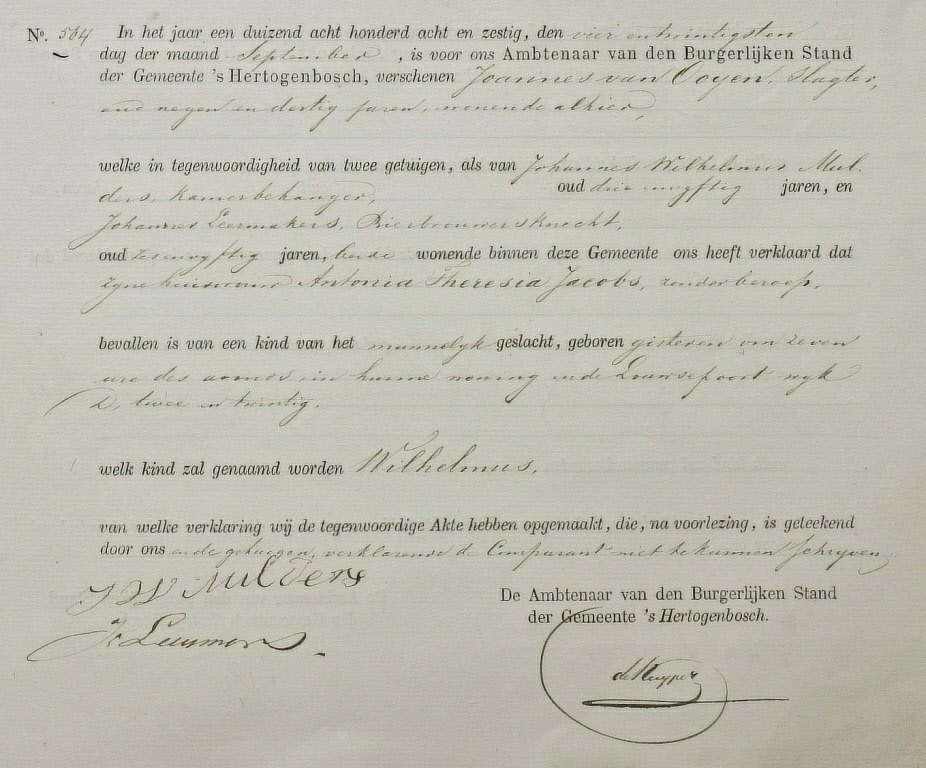 Nº. 564 In het jaar een duizend acht honderd acht en zestig, den vier en twintigsten
dag der maand September, is voor ons Ambtenaar van den Burgerlijken Stand
der Gemeente 's Hertogenbosch, verschenen Joannes van Ooyen, Slagter,
oud negen en dertig jaren, wonende alhier,
welke in tegenwoordigheid van twee getuigen, als van Johannes Wilhelmus Mul
ders, kamerbehanger, oud drie en vyftig jaren, en
Johannes Leermakers, Bierbrouwersknecht,
oud zes en vyftig jaren, beide wonende binnen deze Gemeente ons heeft verklaard dat
zyne huisvrouw Antonia Theresia Jacobs, zonder beroep,
bevallen is van een kind van het mannelyk geslacht, geboren gisteren om zeven
ure des avonds, in hunne woning in de wyk
D, twee en twintig.
welk kind zal genaamd worden Wilhelmus,
van welke verklaring wij de tegenwoordige Akte hebben opgemaakt, die, na voorlezing, is geteekend
door ons en de getuigen, verklarende de Comparant niet te kunnen schryven
J W Mulders
De Ambtenaar van den Burgerlijken Stand
der Gemeente 's Hertogenbosch.
de Kuyper